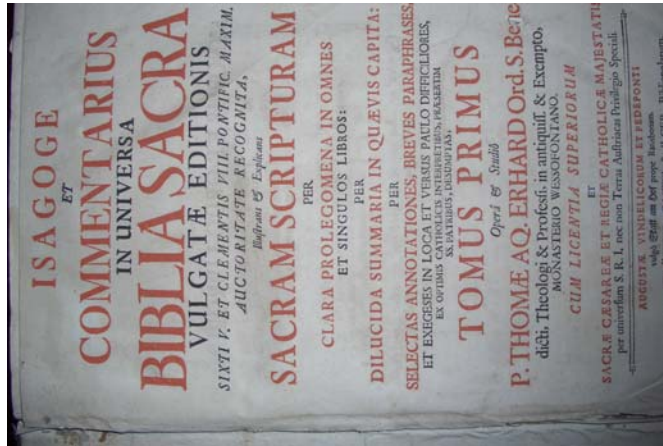 ISAGOGE
ET
COMMENTARIUS
IN UNIVERSA
BIBLIA SACRA
VULGATÆ EDITIONIS
SIXTI V. ET CLEMENTIS VIII. PONTIFIC. MAXIM.
AUCTORITATE RECOGNITA,
Illustrans & Explicans
SACRAM SCRIPTURAM
PER
CLARA PROLEGOMENA IN OMNES
ET SINGULOS LIBROS:
PER
DILUCIDA SUMMARIA IN QUÆVIS CAPITA:
PER
SELECTAS ANNOTATIONES, BREVES PARAPHRASES,
ET EXEGESES IN LOCA ET VERSUS PAULO DIFFICILIORES,
EX OPTIMIS CATHOLICIS INTERPRETIBUS, PRÆSERTIM
SS. PATRIBUS, DESUMPTAS.
TOMUS PRIMUS
Operâ & Studiô
P. THOMÆ AQ. ERHARD Ord. S. Bene
dicti, Theologi & Professi, in antiquiss. & Exempto,
MONASTERIO WESSOFONTANO.
CUM LICENTIA SUPERIORUM
ET
SACRÆ CÆSAREÆ ET REGIÆ CATHOLICÆ MAJESTATIS
per universum S. R. I. nec non Terras Austriacas Privilegio Speciali
AUGUSTÆ VINDELICORUM ET PEDEPONTI
vulgò Stadt am Hof prope Ratisbonam.